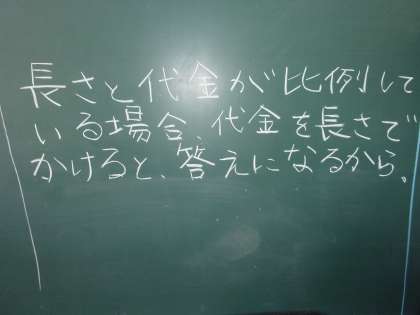 長さと代金が比例して
いる場合、代金を長さで
かけると、答えになるから。